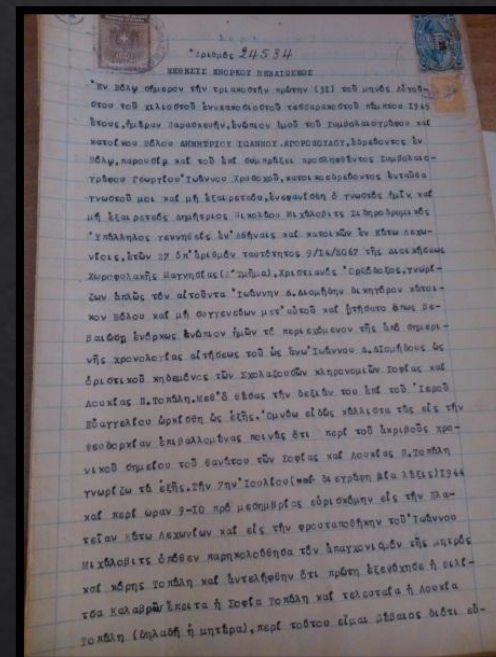 Ἀριθμὸς 24534
ΕΚΘΕΣΙΣ ΕΝΟΡΚΟΥ ΒΕΒΑΙΩΣΕΩΣ
Ἐν Βόλῳ σήμερον τὴν τριακοστὴν πρώτην (31) τοῦ μηνὸς Αὐγού-
στου τοῦ χιλιοστοῦ ἐννεακοσιοστοῦ τεσσαρακοστοῦ πέμπτου 1945
ἔτους, ἡμέραν Παρασκευήν, ἐνώπιον ἐμοῦ τοῦ Συμβολαιογράφου καὶ
κατοίκου Βόλου ΔΗΜΗΤΡΙΟΥ ΙΩΑΝΝΟΥ ΑΓΟΡΟΠΟΥΛΟΥ, ἑδρεύοντος ἐν
Βόλῳ, παρουσίᾳ καὶ τοῦ ἐπὶ συμπράξει προσληφθέντος Συμβολαιο-
γράφου Γεωργίου Ἰωάννου Χρυσοχοῦ, κατοικοεδρεύοντος ἐνταῦθα
γνωστοῦ μοι καὶ μὴ ἐξαιρετέου, ἐνεφανίσθη ὁ γνωστὸς ἡμῖν καὶ
μὴ ἐξαιρετέος Δημήτριος Νικολάου Μιχάλοβιτς Σιδηροδρομικὸς
Ὑπάλληλος γεννηθεὶς ἐν Ἀθήναις καὶ κατοικῶν ἐν Κάτω Λεχω-
νίοις, ἐτῶν 27 ὑπ' ἀριθμὸν ταυτότητος 9/14/2067 τῆς Διοικήσεως
Χωροφυλακῆς Μαγνησίας Τμῆμα), Χριστιανὸς Ὀρθόδοξος, γνωρί-
ζων ἁπλῶς τὸν αἰτοῦντα Ἰωάννην Δ. Διομήδην δικηγόρον κάτοι-
κον Βόλου καὶ μὴ συγγενεύων μετ' αὐτοῦ καὶ ᾐτήσατο ὅπως βε-
βαιώσῃ ἐνόρκως ἐνώπιον ἡμῶν τὰ περιεχόμενον τῆς ἀπὸ σημερι-
νῆς χρονολογίας αἰτήσεως τοῦ ὡς ἄνω Ἰωάννου Δ. Διομήδους ὡς
ὁριστικοῦ κηδεμόνος τῶν Σχολαζουσῶν κληρονομιῶν Σοφίας καὶ
Λουκίας Π. Τοπάλη. Μεθ' ὃ θέσας τὴν δεξιάν του ἐπὶ τοῦ Ἱεροῦ
Εὐαγγελίου ὡρκίσθη ὡς ἑξῆς. Ὀμνύω εἰδὼς κάλλιστα τὰς εἰς τὴν
ψευδορκίαν ἐπιβαλλομένας ποινὰς ὅτι περὶ τοῦ ἀκριβοῦς χρο-
νικοῦ σημείου τοῦ θανάτου τῶν Σοφίας καὶ Λουκίας Π. Τοπάλη
γνωρίζω τὰ ἑξῆς. Τὴν 7ην Ἰουλίου ( διεγράφη μία λέξις) 1944
καὶ περὶ ὥραν 9-10 πρὸ μεσημβρίας εὑρισκόμην εἰς τὴν πλα-
τεῖαν Κάτω Λεχωνίων καὶ εἰς τὴν φρουταποθήκην τοῦ Ἰωάννου
Μιχάλοβιτς ὁπόθεν παρηκολούθησα τὸν ἀπαγχονισμὸν τῆς μητρὸς
καὶ κόρης Τοπάλη καὶ ἀντελήφθην ὅτι πρώτη ἐξεψύχησε ἡ Φιλί-
τσα Καλαβρῦ ἔπειτα ἡ Σοφία Τοπάλη καὶ τελευταία ἡ Λουκία
Τοπάλη (δηλαδὴ ἡ μητέρα), περὶ τούτου εἶμαι βέβαιος διότι εὑ-